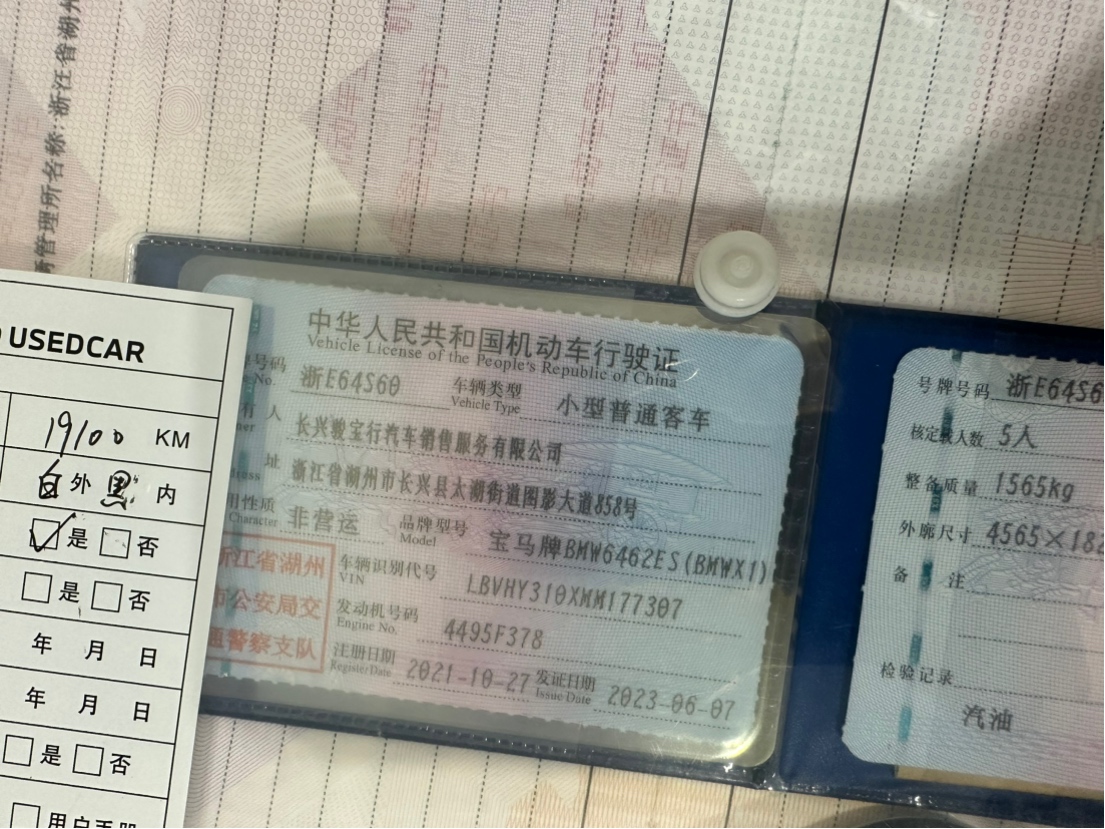 管理所名称:浙江省湖州
USEDCAR
19100 KM
白 外 黑 内
是 否
是 否
年 月 日
年 月 日
是 否
用户手册
中华人民共和国机动车行驶证
Vehicle License of the People's Republic of China
号码 浙E64S60 车辆类型 小型普通客车
No. Vehicle Type
有 人 长兴骏宝行汽车销售服务有限公司
址 浙江省湖州市长兴县太湖街道图影大道858号
用性质 非营运 品牌型号 宝马牌BMW6462ES(BMWX1)
Character Model
浙江省湖州
市公安局交
通警察支队
车辆识别代号 LBVHY310XMM177307
VIN
发动机号码 4495F378
Engine No.
注册日期 2021-10-27 发证日期 2023-06-07
Register Date Issue Date
号牌号码 浙E64S6
核定载人数 5人
整备质量 1565kg
外廓尺寸 4565×182
备 注
检验记录
汽油